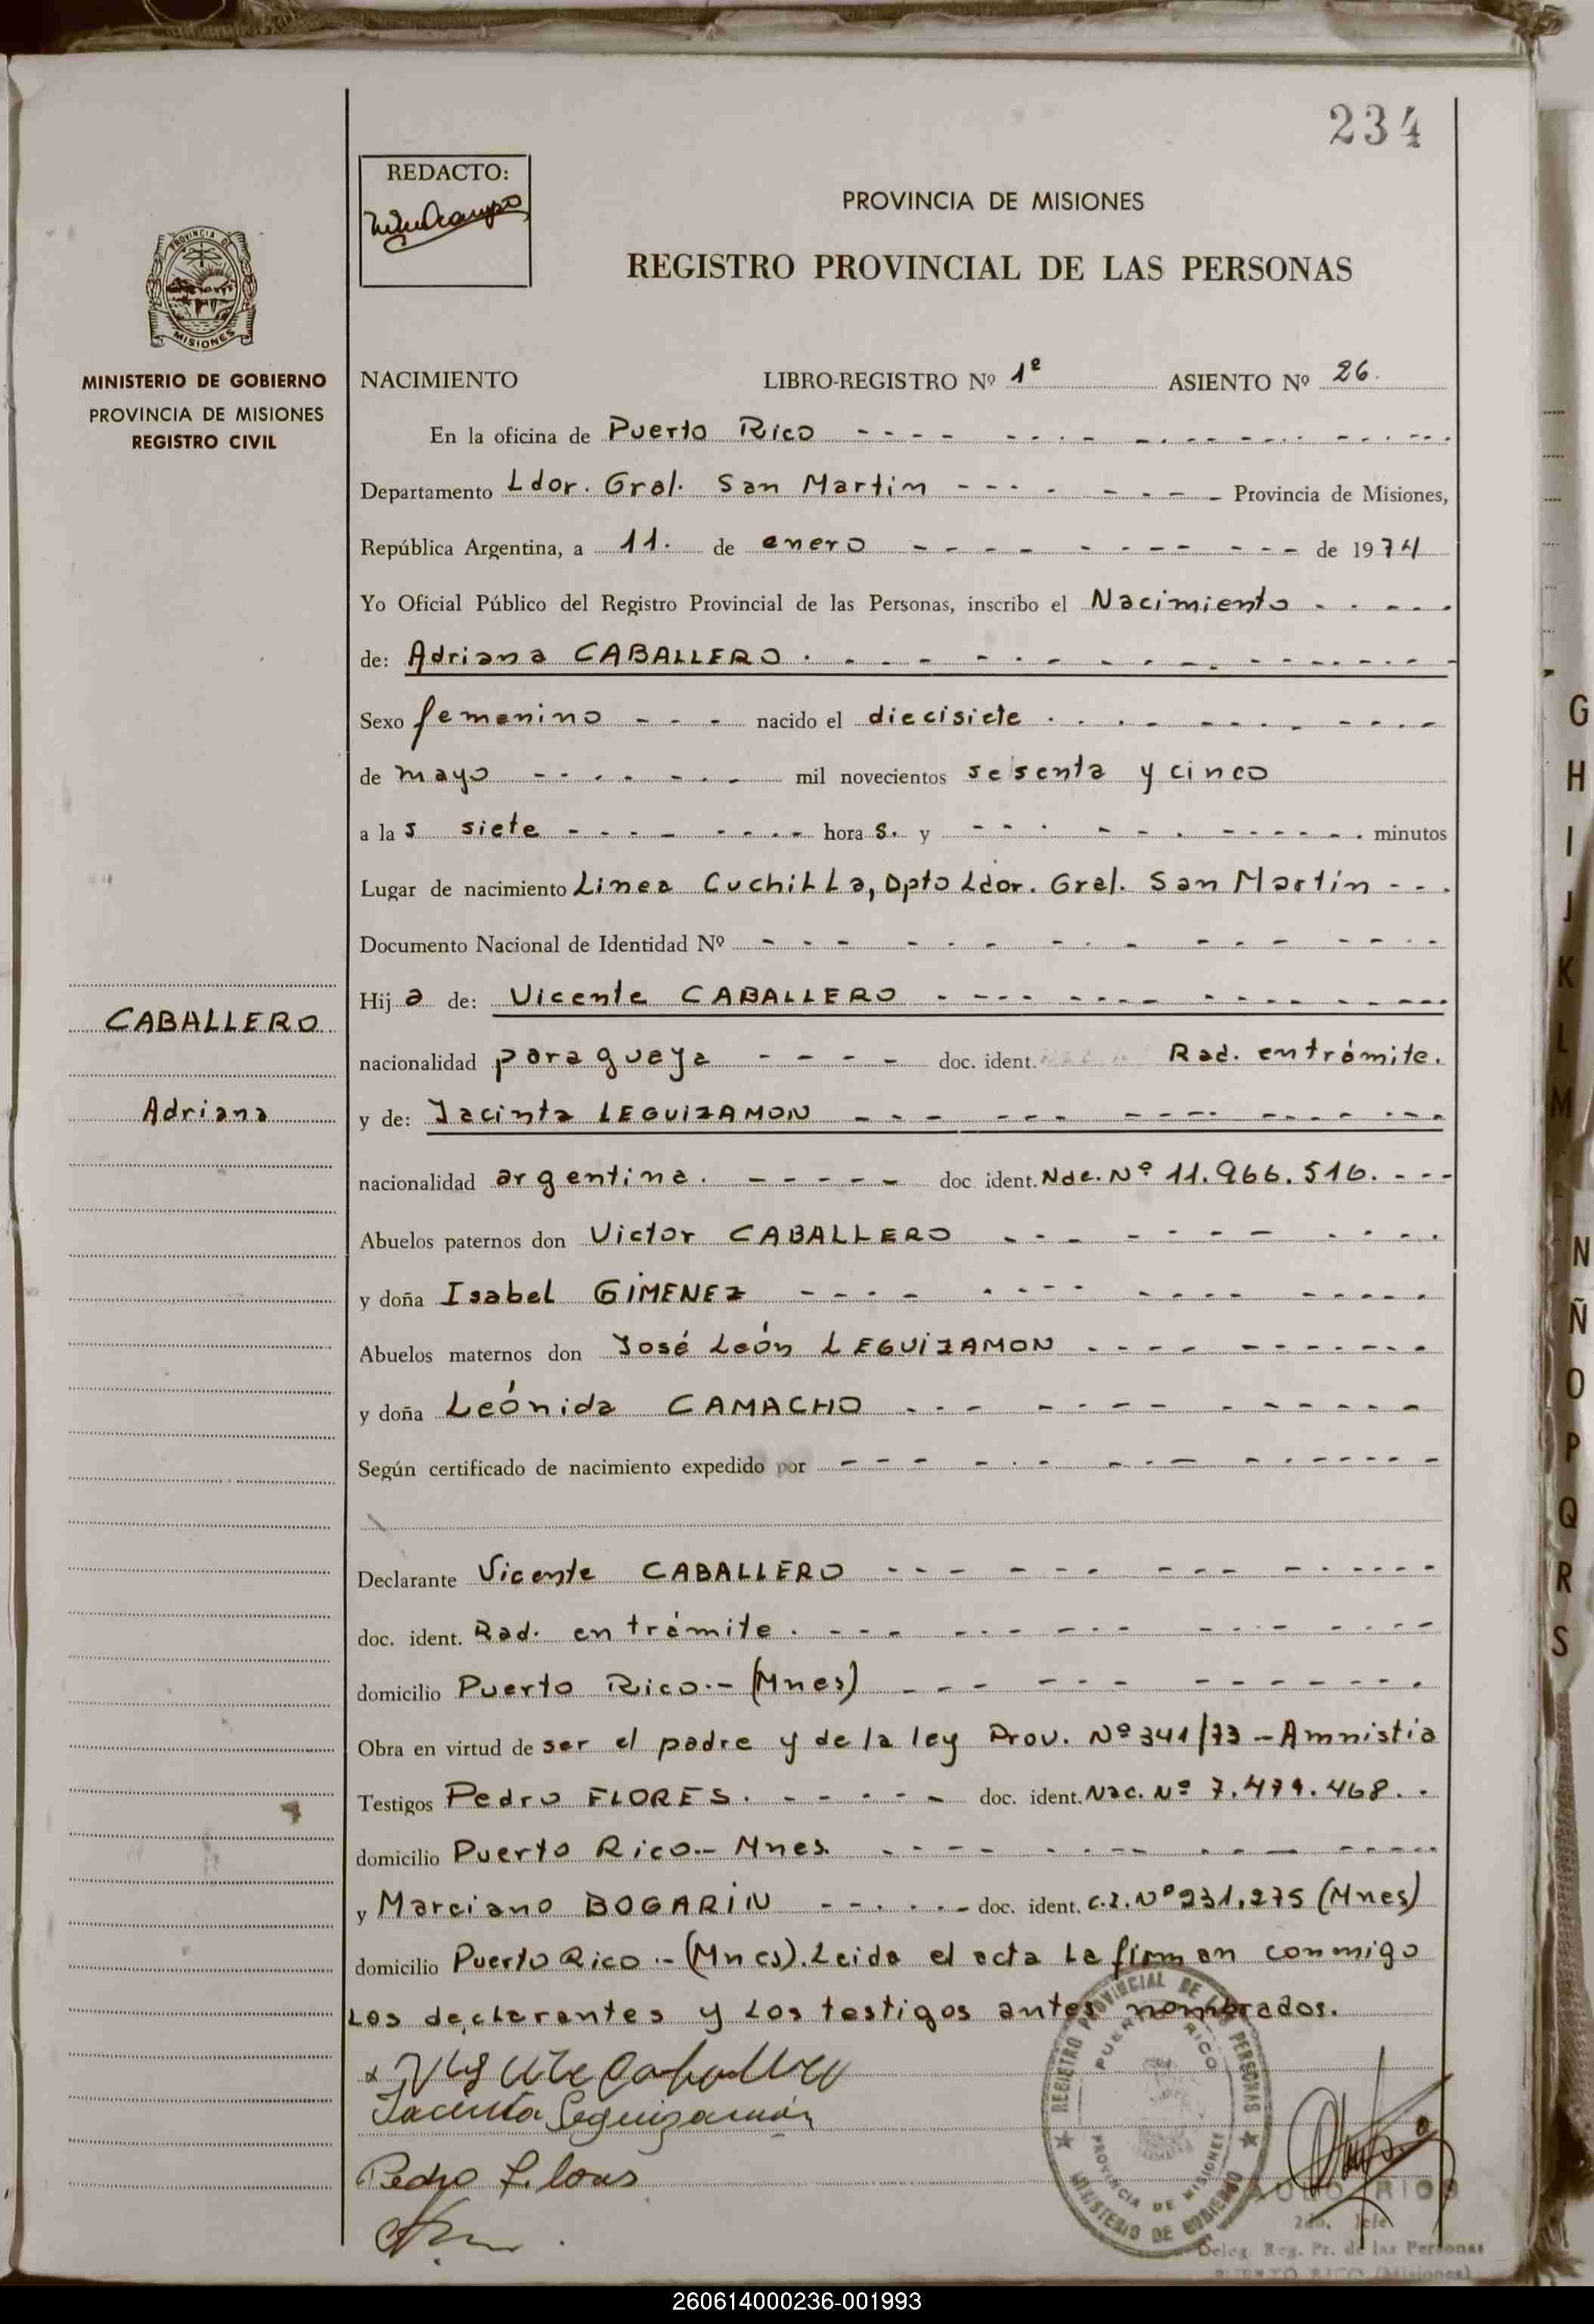 234
REDACTO:
PROVINCIA DE MISIONES
REGISTRO PROVINCIAL DE LAS PERSONAS
PROVINCIA DE
MISIONES
MINISTERIO DE GOBIERNO
PROVINCIA DE MISIONES
REGISTRO CIVIL
NACIMIENTO LIBRO-REGISTRO Nº 1º ASIENTO Nº 26.
En la oficina de Puerto Rico
Departamento Ldor. Gral. San Martín Provincia de Misiones,
República Argentina, a 11. de enero de 1974
Yo Oficial Público del Registro Provincial de las Personas, inscribo el Nacimiento
de: Adriana CABALLERO
Sexo femenino nacido el diecisiete
de mayo mil novecientos sesenta y cinco
a las siete horas. y minutos
Lugar de nacimiento Linea Cuchilla, Dpto Ldor. Gral. San Martín
Documento Nacional de Identidad Nº
Hija de: Vicente CABALLERO
CABALLERO
nacionalidad paraguaya doc. ident. Rad. en trámite.
Adriana
y de: Jacinta LEGUIZAMON
nacionalidad argentina. doc. ident. Nac. Nº 11.966.516.
Abuelos paternos don Victor CABALLERO
y doña Isabel GIMENEZ
Abuelos maternos don José León LEGUIZAMON
y doña Leónida CAMACHO
Según certificado de nacimiento expedido por
Declarante Vicente CABALLERO
doc. ident. Rad. en trámite.
domicilio Puerto Rico.- (Mnes)
Obra en virtud de ser el padre y de la ley Prov. Nº 341/73 - Amnistia
Testigos Pedro FLORES. doc. ident. Nac. Nº 7.479.468.
domicilio Puerto Rico.- Mnes.
y Marciano BOGARIN doc. ident. C.I. Nº 231.275 (Mnes)
domicilio Puerto Rico.- (Mnes). Leida el acta la firman conmigo
los declarantes y los testigos antes nombrados.
Vicente Caballero
Jacinta Leguizamón
Pedro Flores
REGISTRO PROVINCIAL DE LAS PERSONAS
PUERTO RICO
PROVINCIA DE MISIONES
MINISTERIO DE GOBIERNO
RIOS
2do. Jefe
Deleg. Reg. Pr. de las Personas
PUERTO RICO (Misiones)
G
H
I
J
K
L
M
N
Ñ
O
P
Q
R
S
260614000236-001993